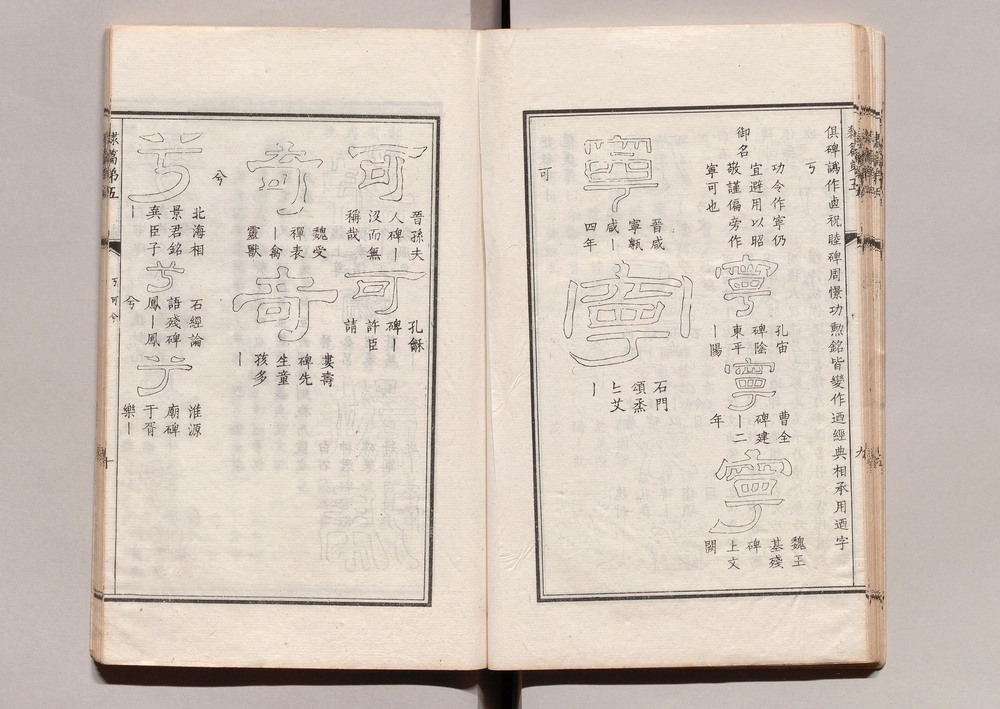 俱碑譌作逌祝睦碑周憬功勲銘皆變作迺經典相承用迺字
丂
功令作寧仍
宜避用以昭
御名
敬謹偏旁作
寧可也
寧
孔宙
碑陰
東平
丨陽
寧
曹全
碑建
丨二
年
寧
魏王
基殘
碑
上文
闕
寧
晉咸
寧甎
咸丨
四年
寧
石門
頌烝
丨
可
可
晉孫夫
人碑丨
沒而無
稱哉
可
孔龢
碑丨
許臣
請
奇
魏受
禪表
丨禽
靈獸
奇
婁壽
碑先
生童
孩多
丨
兮
兮
北海相
景君銘
丨
兮
石經論
語殘碑
鳳丨鳳
兮
兮
淮源
廟碑
于胥
樂丨
隸篇弟五
丂可兮
十
隸篇弟五
九